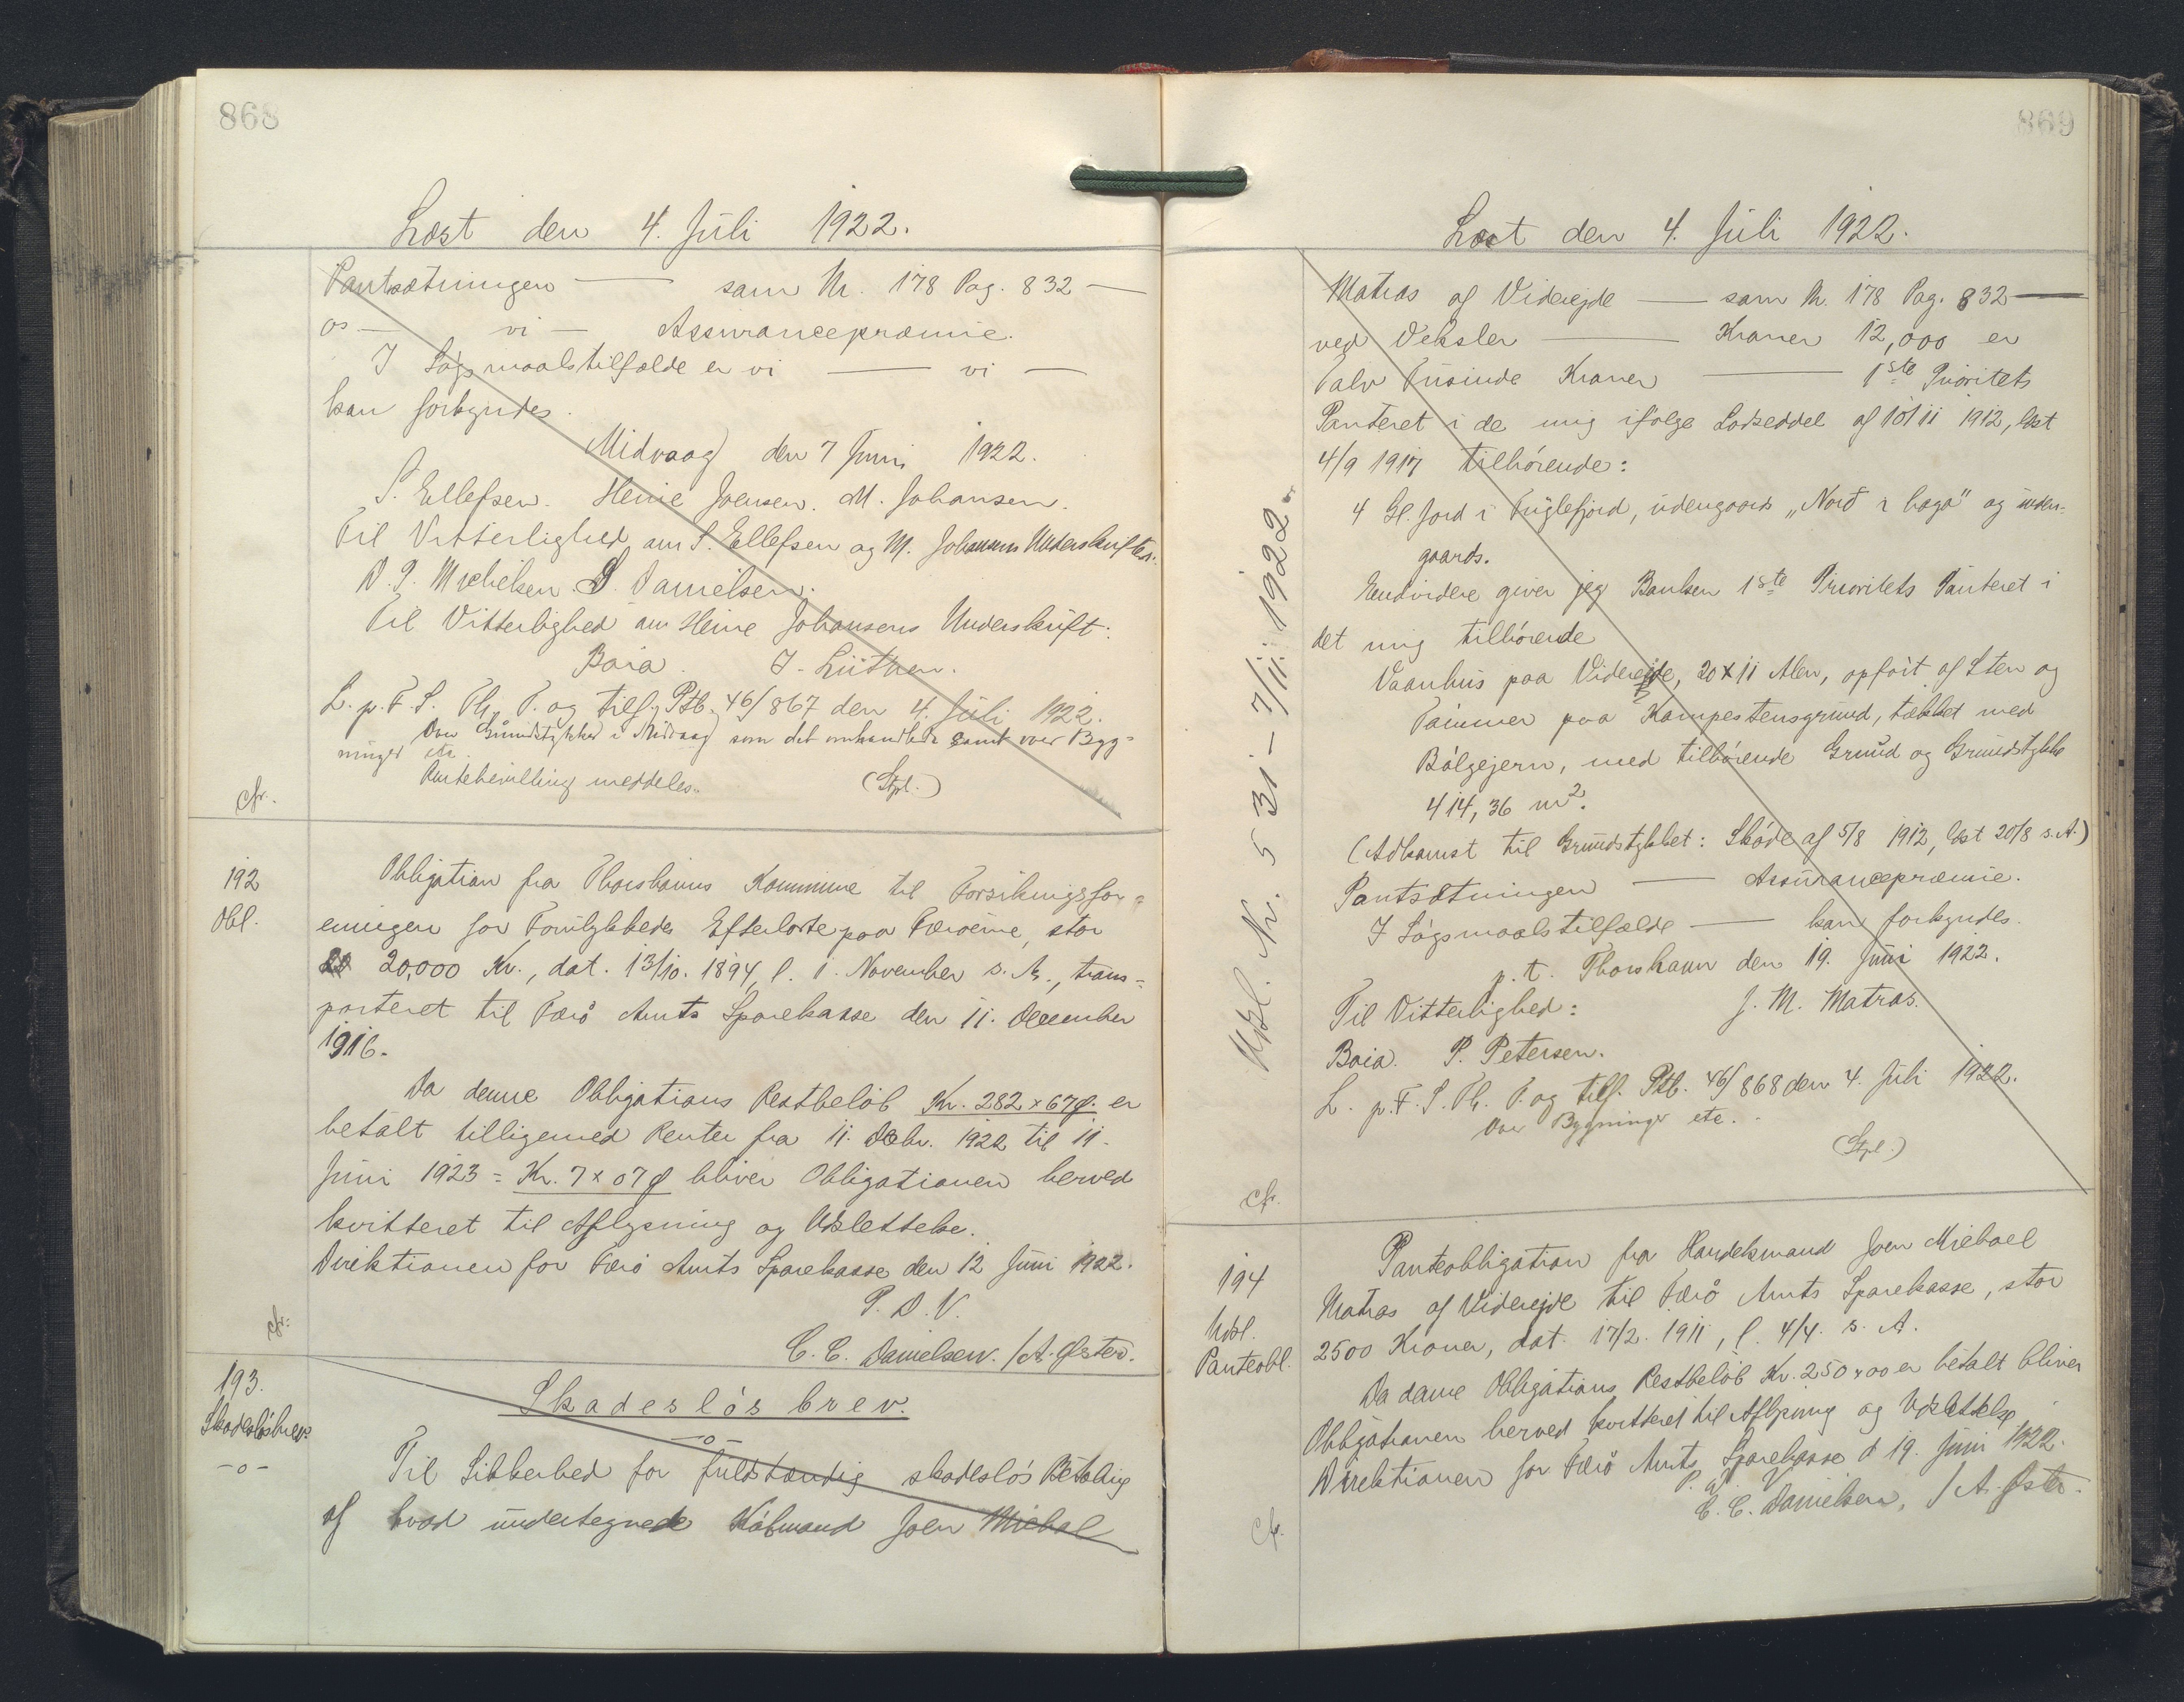 868
Læst den 4. Juli 1922.
Pantsætningen — sam Nr. 178 Pag. 832 —
os — vi — Assurancepræmie.
I Søgsmaalstilfælde er vi — vi —
kan forkyndes.
Midvaag den 7 Juni 1922.
S. Ellefsen. Heine Joensen. M. Johansen.
Til Vitterlighed om S. Ellefsen og M. Johansens Underskrifter:
D. P. Michelsen. D. Danielsen.
Til Vitterlighed om Heine Johansens Underskrift:
Baia. J. Lüthen.
L. p. F. S. Th. P. og tilf. Ptb. 46/867 den 4. Juli 1922.
Over Grundstykket i Midvaag som det omhandlede samt over Byg=
ninger etc.
Amtsbevilling meddeles.
(Stpl.)
cfr.
192
Obl.
Obligation fra Thorshavns Kommune til Forsikringsfor=
eningen for Forulykkedes Efterladte paa Færøerne, stor
20,000 Kr., dat. 13/10. 1894, l. 1. November s. A., trans=
porteret til Færø Amts Sparekasse den 11. December
1916.
Da denne Obligations Restbeløb Kr. 282 x 67 ø. er
betalt tilligemed Renter fra 11. Decbr. 1922 til 11.
Juni 1923 = Kr. 7 x 07 ø bliver Obligationen herved
kvitteret til Aflysning og Udslettelse.
Direktionen for Færø Amts Sparekasse den 12 Juni 1922.
P. D. V.
C. C. Danielsen. / A. Øster.
cfr.
193.
Skadesløsbrev
-o-
Skadesløsbrev.
-o-
Til Sikkerhed for fuldstændig skadesløs Betaling
af hvad undertegnede Købmand Joen Michal
869
Læst den 4. Juli 1922.
Udsl. Nr. 531 - 7/11. 1922.
Matras af Viderejde — sam Nr. 178 Pag. 832 —
ved Veksler — Kroner 12,000 er
Tolv Tusinde Kroner — 1ste Prioritets
Panteret i de mig ifølge Lodseddel af 10/11 1912, læst
4/9 1917 tilhørende:
4 Gl. Jord i Fuglefjord, udengaards „Nord i haga" og inden=
gaards.
Endvidere giver jeg Banken 1ste Prioritets Panteret i
det mig tilhørende
Vaanhus paa Viderejde, 20 x 11 Alen, opført af Sten og
Tømmer paa Kampestensgrund, tækket med
Bølgejern, med tilhørende Grund og Grundstykke
414,36 m².
(Adkomst til Grundstykket: Skøde af 5/8 1912, læst 20/8 s. A.)
Pantsætningen — Assurancepræmie.
I Søgsmaalstilfælde — kan forkyndes.
p. t. Thorshavn den 19. Juni 1922.
Til Vitterlighed: J. M. Matras.
Baia. P. Petersen.
L. p. F. S. Th. P. og tilf. Ptb. 46/868 den 4. Juli 1922.
Over Bygninger etc.
(Stpl.)
cfr.
194
Udsl.
Panteobl.
Panteobligation fra Handelsmand Joen Michael
Matras af Viderejde til Færø Amts Sparekasse, stor
2500 Kroner, dat. 17/2. 1911, l. 4/4. s. A.
Da denne Obligations Restbeløb Kr. 250 x 00 er betalt bliver
Obligationen herved kvitteret til Aflysning og Udslettelse
Direktionen for Færø Amts Sparekasse d 19. Juni 1922.
P. D. V.
C. C. Danielsen, / A. Øster.
cfr.